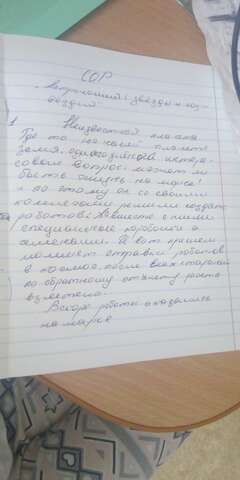 СОР
"Астрономия: звезды и соз-
вездия"
1 Неизвестная планета
Где то на нашей планете
Земля, один учёный интере-
совал вопрос: может ли
быть жизнь на марсе?
и по этому он со своими
коллегами решили создать
роботов. Вместе с ними
специальные коробочки с
И вот пришел
момент отправки роботов
в космос, после всех стараний
по обратному отсчету ракета
взлетела.
Вскоре роботы оказались
на марсе